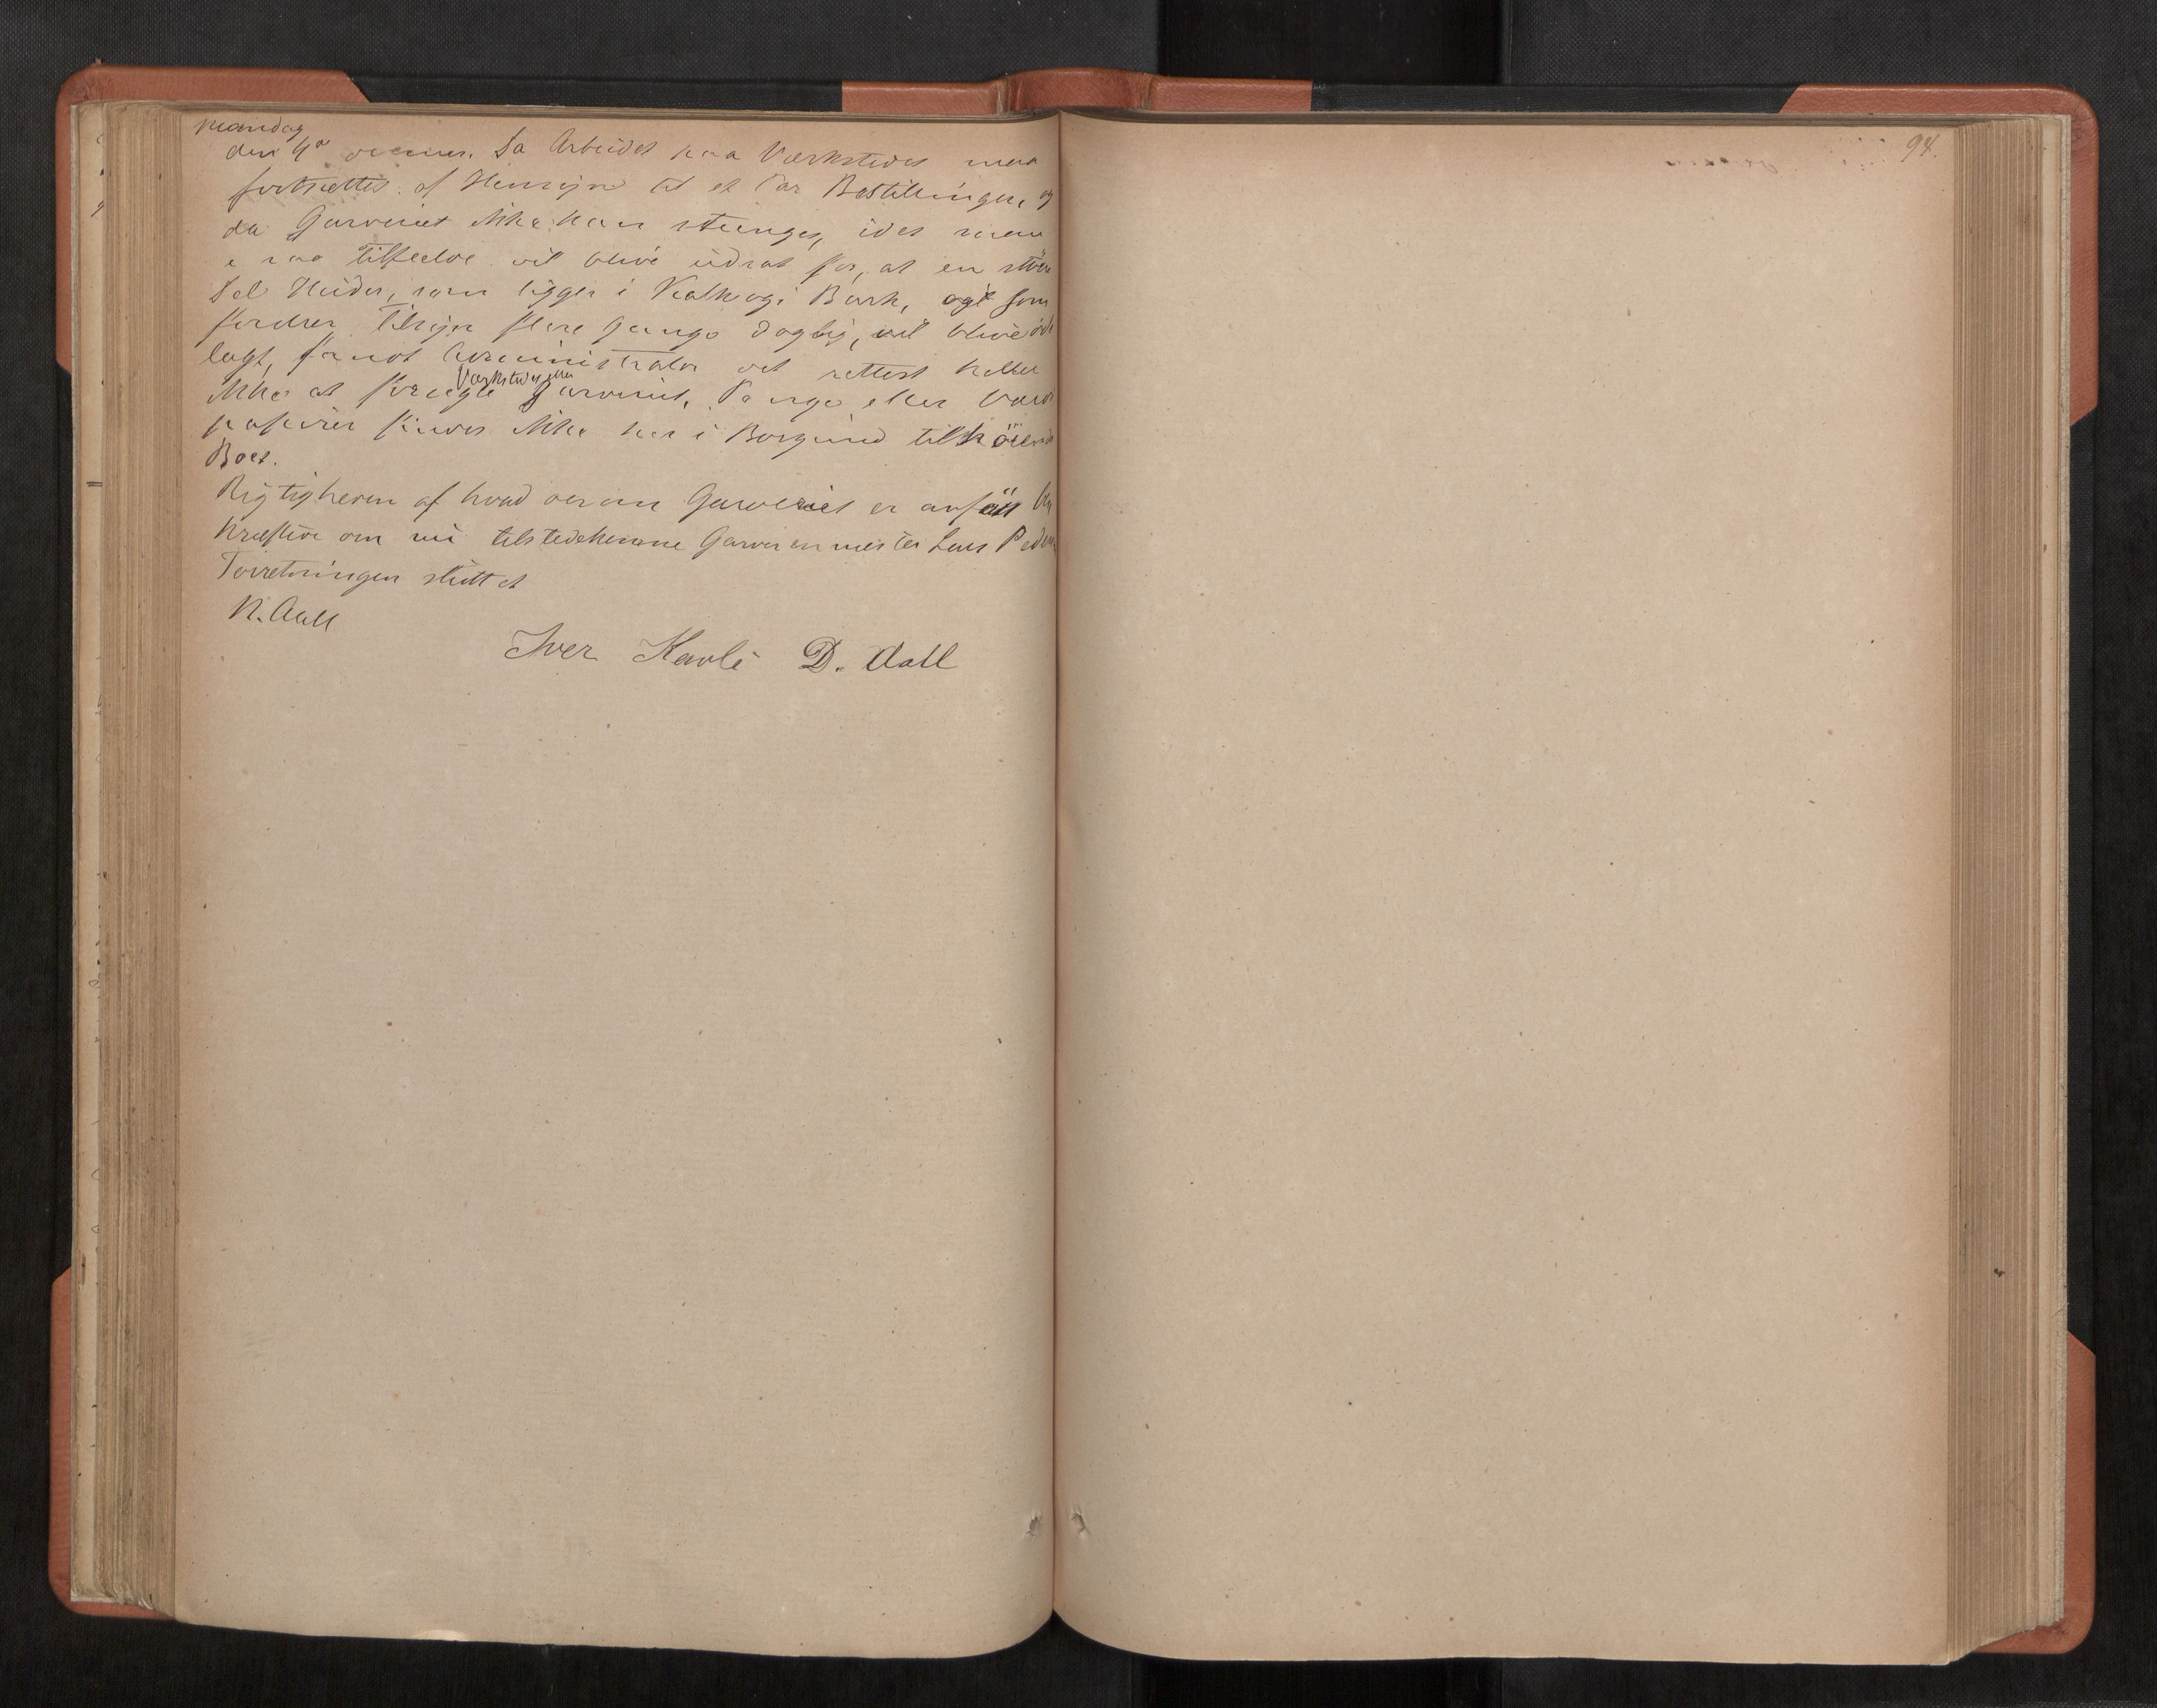 mandag
den 4de Da Arbeidet paa Værkstedet maa
fortsættes af Hensyn til et Par Bestillinger, og
da Garveriet ikke kan stænges, idet man
i saa Tilfælde vil blive udsat for, at en større
Del Huder, som ligger i Kalk og i Bark, og som
fordrer Tilsyn flere Gange daglig, vil blive øde
lagt, fandt Administrator det rettest heller
Værkstedet eller
ikke at forsegle Garveriet. Penge eller Værdi
papirer findes ikke her i Borgund tilhørende
Boet.
Rigtigheden af hvad der om Garveriet er anført be
kræftede den nu tilstedekomne Garversvend Lars Peder
Forretningen sluttet
N. Aall
Iver Kavli D. Aall
94.